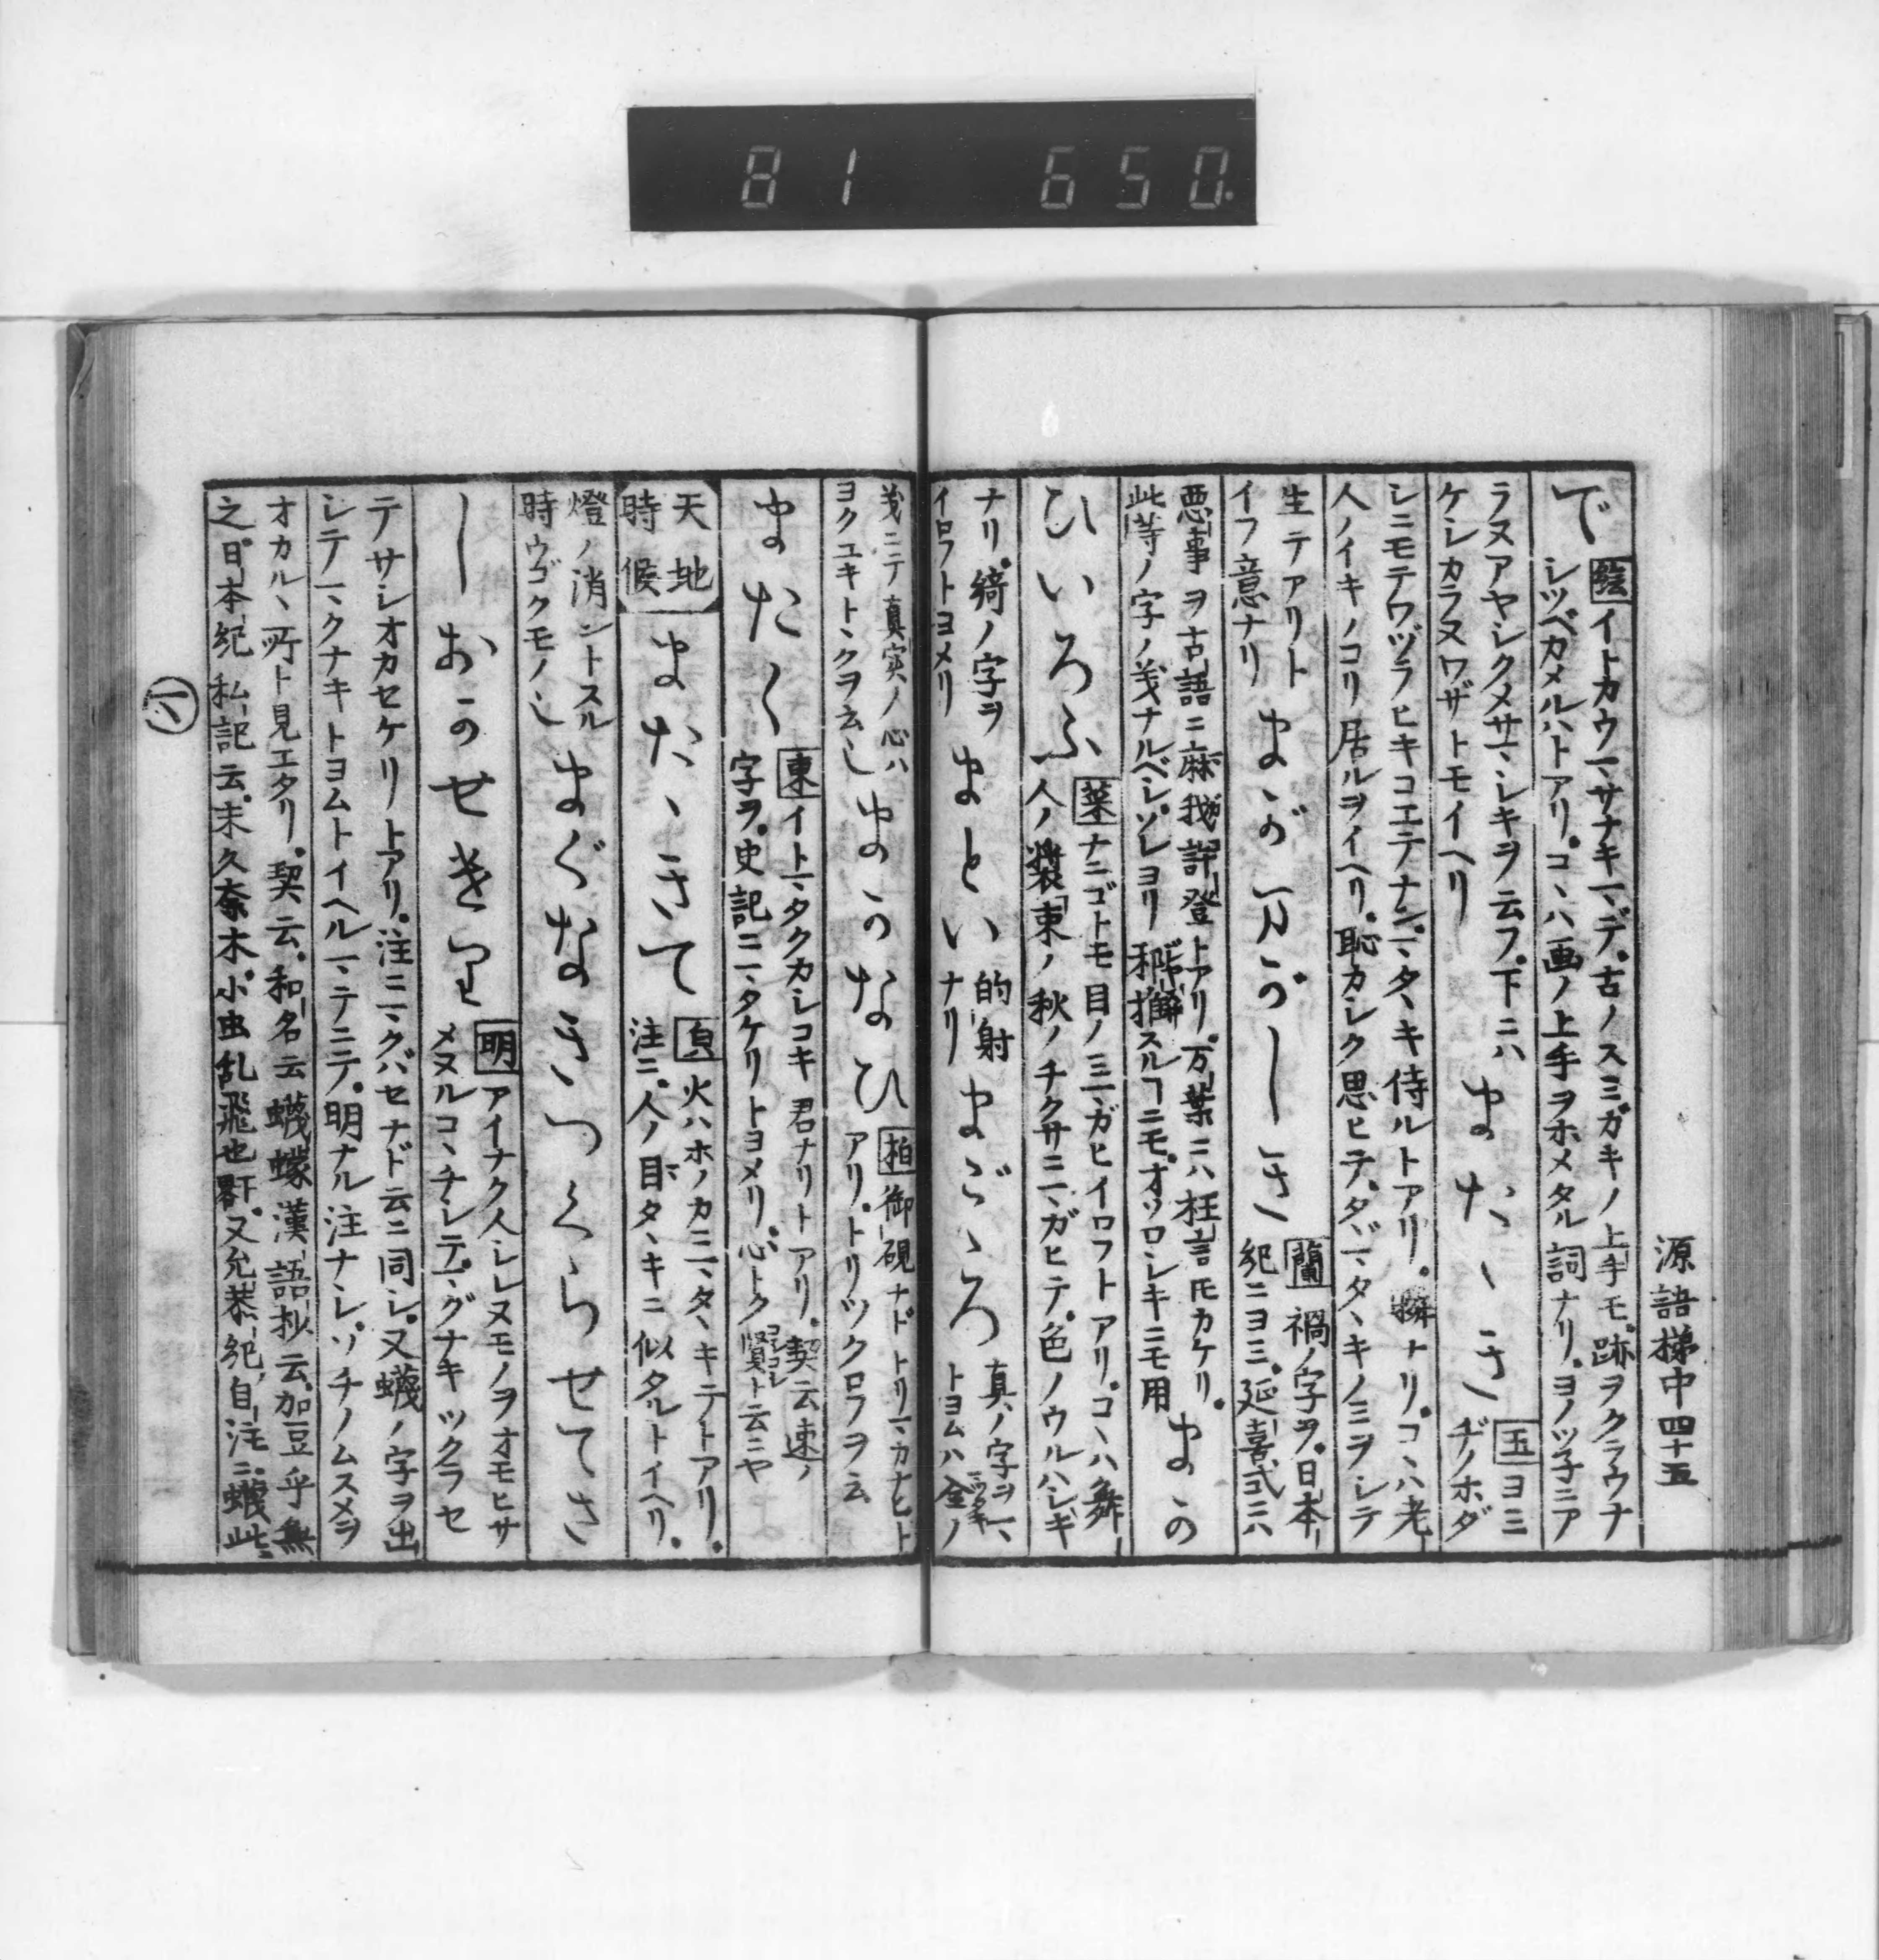 81 650
源語梯中四十五
で
絵イトカウマサナキマデ。古ノスミガキノ上手モ。跡ヲクラウナ
シツベカメルハトアリ。コヽハ画ノ上手ヲホメタル詞ナリ。ヨノツ子ニア
ラヌアヤシクメサマシキヲ云フ。下ニハ
ケシカラヌワザトモイヘリ
またゝき
玉ヨミ
ヂノホダ
シニモテワヅラヒキコエテナン。マタヽキ侍ルトアリ。瞬ナリ。コヽハ老
人ノイキノコリ居ルヲイヘリ。恥カシク思ヒテ。タヾマタヽキノミヲシテ
生テアリト
イフ意ナリ
まが〳〵しき
蘭禍ノ字ヲ。日本
紀ニヨミ。延喜式ニハ
悪事ヲ古語ニ麻我許登トアリ。万葉ニハ枉言トモカケリ。
此等ノ字ノ義ナルベシ。ソレヨリ邪推スルコニモ。オソロシキニモ用
まの
ひいろふ
葉ナニゴトモ目ノミマガヒイロフトアリ。コヽハ舞
人ノ装束ノ秋ノチクサニマガヒテ。色ノウルハシギ
ナリ。綺ノ字ヲ
イロフトヨメリ
まとい
的射
ナリ
まごゝろ
真ノ字ヲマ
トヨムハ全ノ
義ニテ真実ノ心ハ
ヨクユキトヾクヲ云シ
まかなひ
柏御硯ナドトリマカナヒト
アリ。トリツクロフヲ云
また〳〵
東イトマタクカシコキ君ナリトアリ。契云速ノ
字ヲ。史記ニマタケリトヨメリ。心トク賢ト云ニヤ
天地
時候
またゝきて
真火ハホノカニマタヽキテトアリ。
注ニ。人ノ目タヽキニ似タルトイヘリ。
燈ノ消ントスル
時ウゴクモノシ
まぐなきつくらせてさ
しおかせきり
明アイナク人シレヌモノヲオモヒサ
メヌルコヽチシテ。マグナキツクラセ
テサシオカセケリトアリ。注ニマクバセナド云ニ同シ。又蠛ノ字ヲ出
シテマクナキトヨムトイヘルマテニテ。明ナル注ナシ。ソチノムスメヲ
オカルヽ所ト見エタリ。契云。和名云蠛蠓漢語抄云。加豆乎無
之。日本紀私記云。末久奈木。小虫乱飛也。又允恭紀自注ニ。蠛此